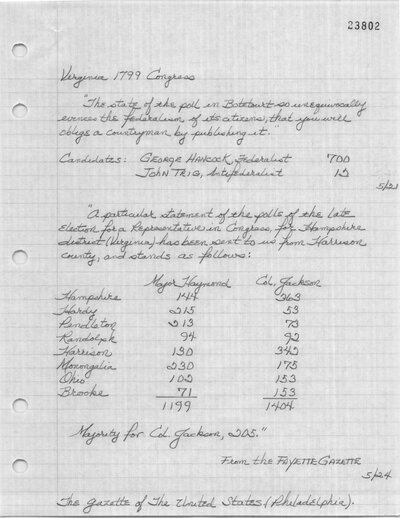 23802
Virginia 1799 Congress
"The state of the poll in Botetourt so unequivocally
evinces the Federalism of its citizens, that you will
oblige a countryman by publishing it."
Candidates: GEORGE HANCOCK, Federalist 700
JOHN TRIG, Antifederalist 12
5/21
"A particular statement of the polls of the late
Election for a Representative in Congress, for Hampshire
district (Virginia) has been sent to us from Harrison
county, and stands as follows:
Major Haymond Col. Jackson
Hampshire 144 363
Hardy 215 53
Pendleton 213 73
Randolph 94 92
Harrison 130 342
Monongalia 230 175
Ohio 102 153
Brooke 71 153
1199 1404
Majority for Col. Jackson, 205."
From the FAYETTE GAZETTE
5/24
The Gazette of The United States (Philadelphia).